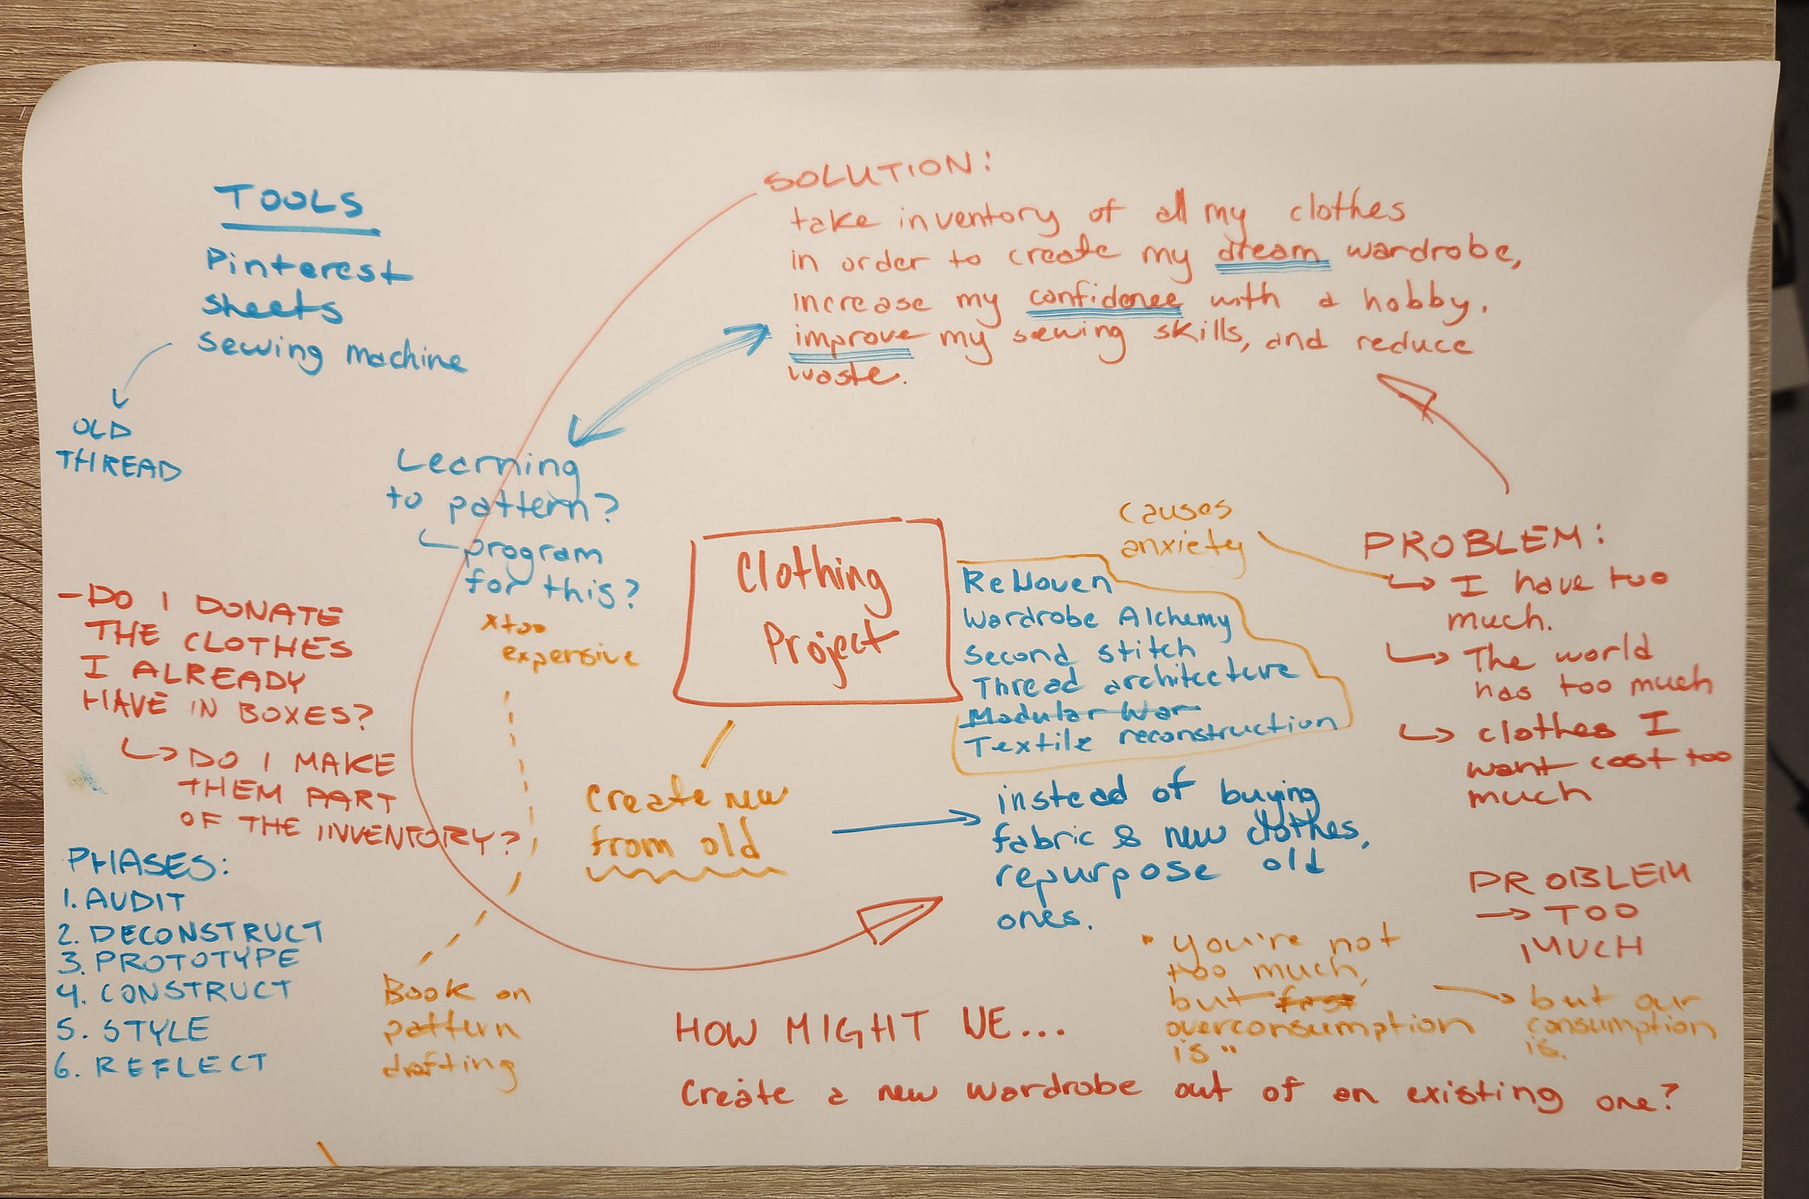 TOOLS
Pinterest
sheets
sewing machine
OLD
THREAD
SOLUTION:
take inventory of all my clothes
in order to create my dream wardrobe,
increase my confidence with a hobby.
improve my sewing skills, and reduce
waste.
Learning
to pattern?
program
for this?
x too
expensive
Clothing
Project
causes
anxiety
ReWoven
Wardrobe Alchemy
Second stitch
Thread architecture
Modular War
Textile reconstruction
PROBLEM:
I have too
much.
The world
has too much
clothes I
want cost too
much
- DO I DONATE
THE CLOTHES
I ALREADY
HAVE IN BOXES?
DO I MAKE
THEM PART
OF THE INVENTORY?
Create new
from old
instead of buying
fabric & new clothes,
repurpose old
ones.
PHASES:
1. AUDIT
2. DECONSTRUCT
3. PROTOTYPE
4. CONSTRUCT
5. STYLE
6. REFLECT
Book on
pattern
drafting
PROBLEM
→ TOO
MUCH
"you're not
too much,
but
overconsumption
is"
but our
consumption
is.
HOW MIGHT WE...
Create a new wardrobe out of an existing one?